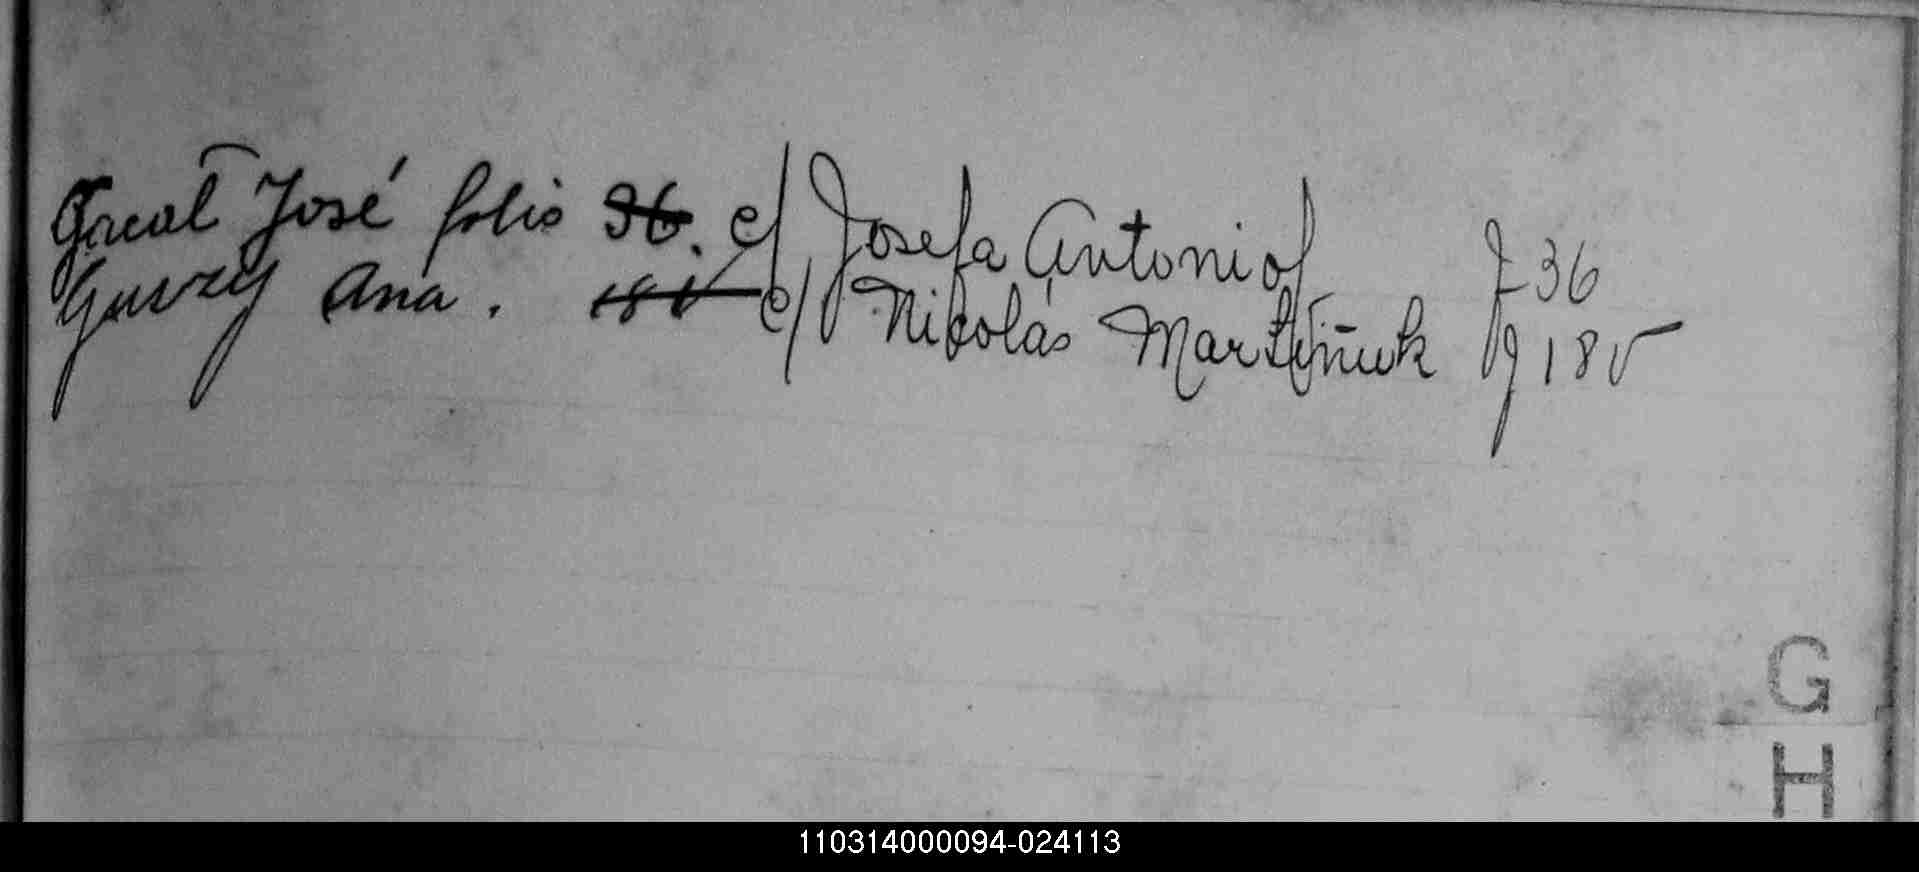 Gacal José folio 36. c/ Josefa Antoniof f 36
Guvzy Ana. 18v c/ Nikolás Martiñuk f 18v
G
H
110314000094-024113